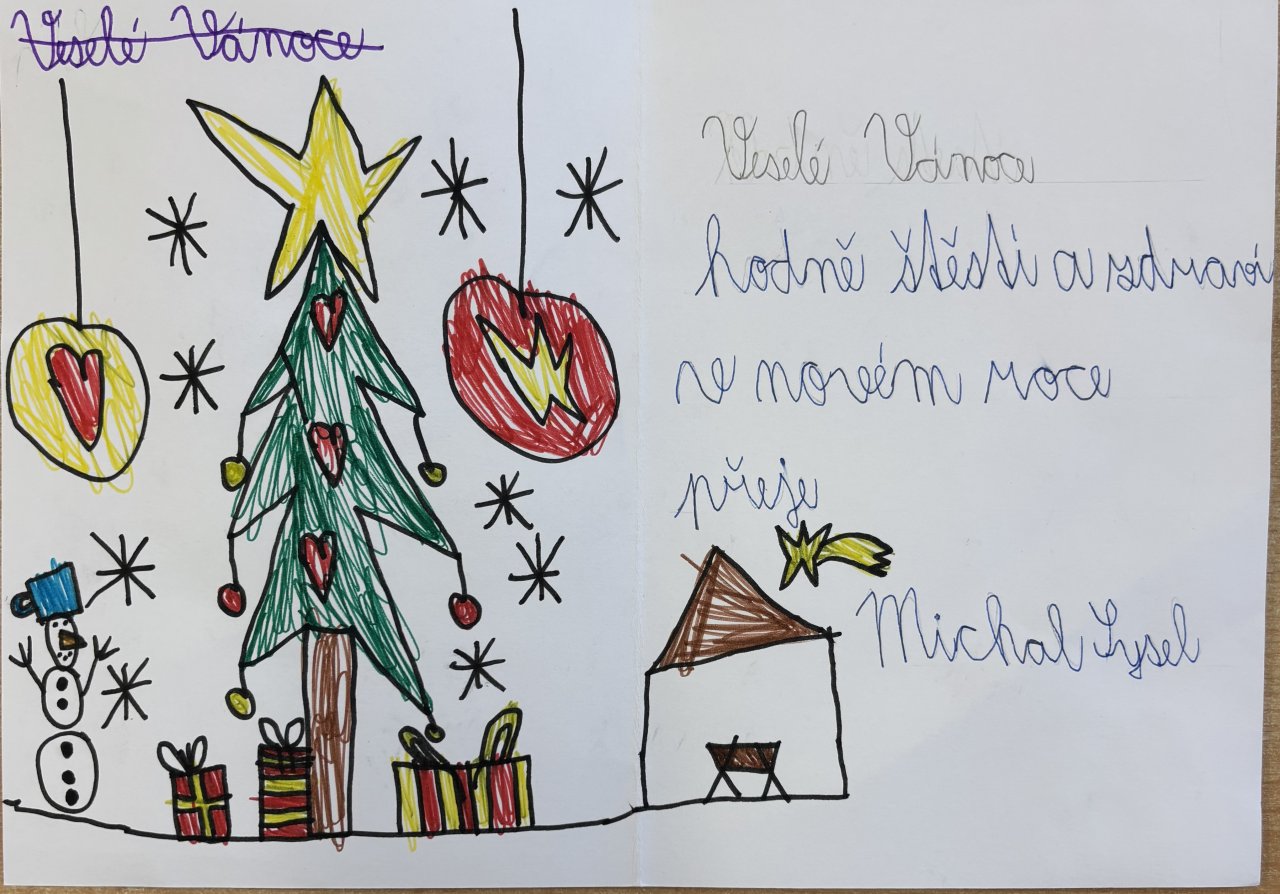 Veselé Vánoce
Veselé Vánoce
hodně štěstí a zdraví
v novém roce
přeje
Michal Lysel